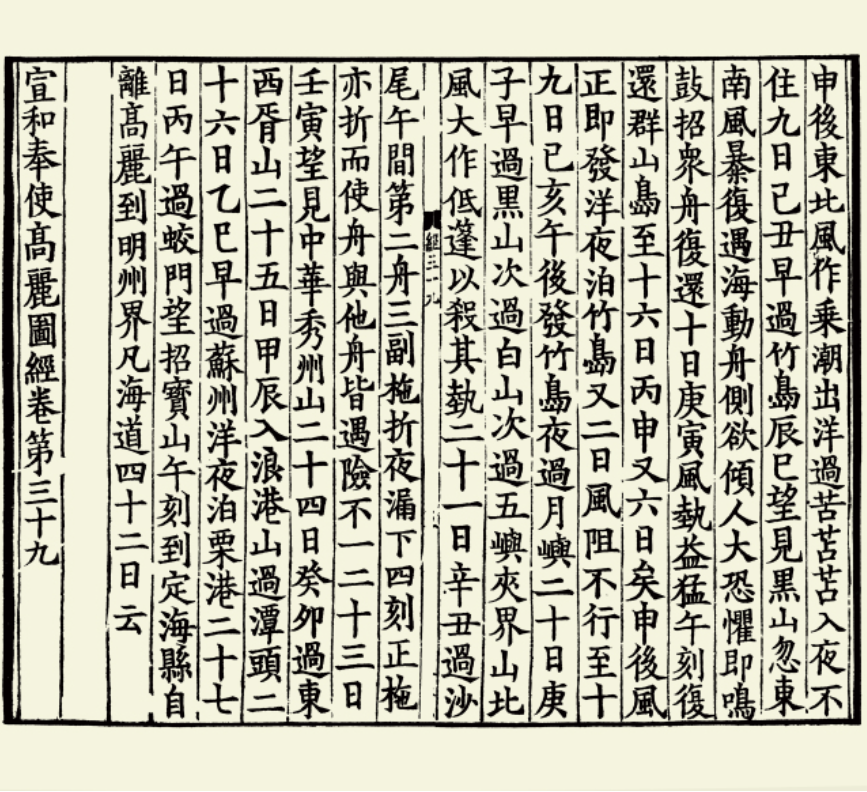 申後東北風作乘潮出洋過苦苫苫入夜不
住九日己丑早過竹島辰巳望見黑山忽東
南風暴復遇海動舟側欲傾人大恐懼即鳴
鼓招衆舟復還十日庚寅風埶益猛午刻復
還群山島至十六日丙申又六日矣申後風
正即發洋夜泊竹島又二日風阻不行至十
九日己亥午後發竹島夜過月嶼二十日庚
子早過黑山次過白山次過五嶼夾界山北
風大作低篷以殺其埶二十一日辛丑過沙
經三十九
尾午間第二舟三副柂折夜漏下四刻正柂
亦折而使舟與他舟皆遇險不一二十三日
壬寅望見中華秀州山二十四日癸卯過東
西胥山二十五日甲辰入浪港山過潭頭二
十六日乙巳早過蘇州洋夜泊栗港二十七
日丙午過蛟門望招寶山午刻到定海縣自
離髙麗到明州界凡海道四十二日云
宣和奉使髙麗圖經卷第三十九